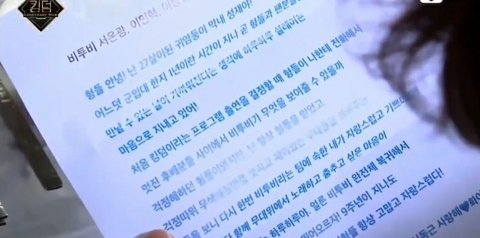 킹덤
LEGENDARY WAR
비투비 서은광, 이민혁, 이
형들 안녕! 난 27살이된 귀염둥이 막내 성재야!
어느덧 군입대 한지 1년이란 시간이 지나 곧 형들과 팬분들
만날 수 있는 날이 가까워진다는 생각에 하루하루 설레이는
마음으로 지내고 있어!
처음 킹덤이라는 프로그램 출연을 결정할 때 형들이 나한테 전화해서
멋진 후배분들 사이에서 비투비가 무엇을 보여줄 수 있을까
걱정해하던 형들이었지만 난 항상 형들을 믿었고
걱정따위
을 보니 다시 한번 비투비라는 팀에 속한 내가 자랑스럽고 기쁘
함께 무대위에서 노래하고 춤추고 싶은 마음이
하루하루야. 얼른 비투비 완전체 복귀해서
9주년이 지나도
형들을 항상 고맙고 자랑스럽다!
사랑해♥